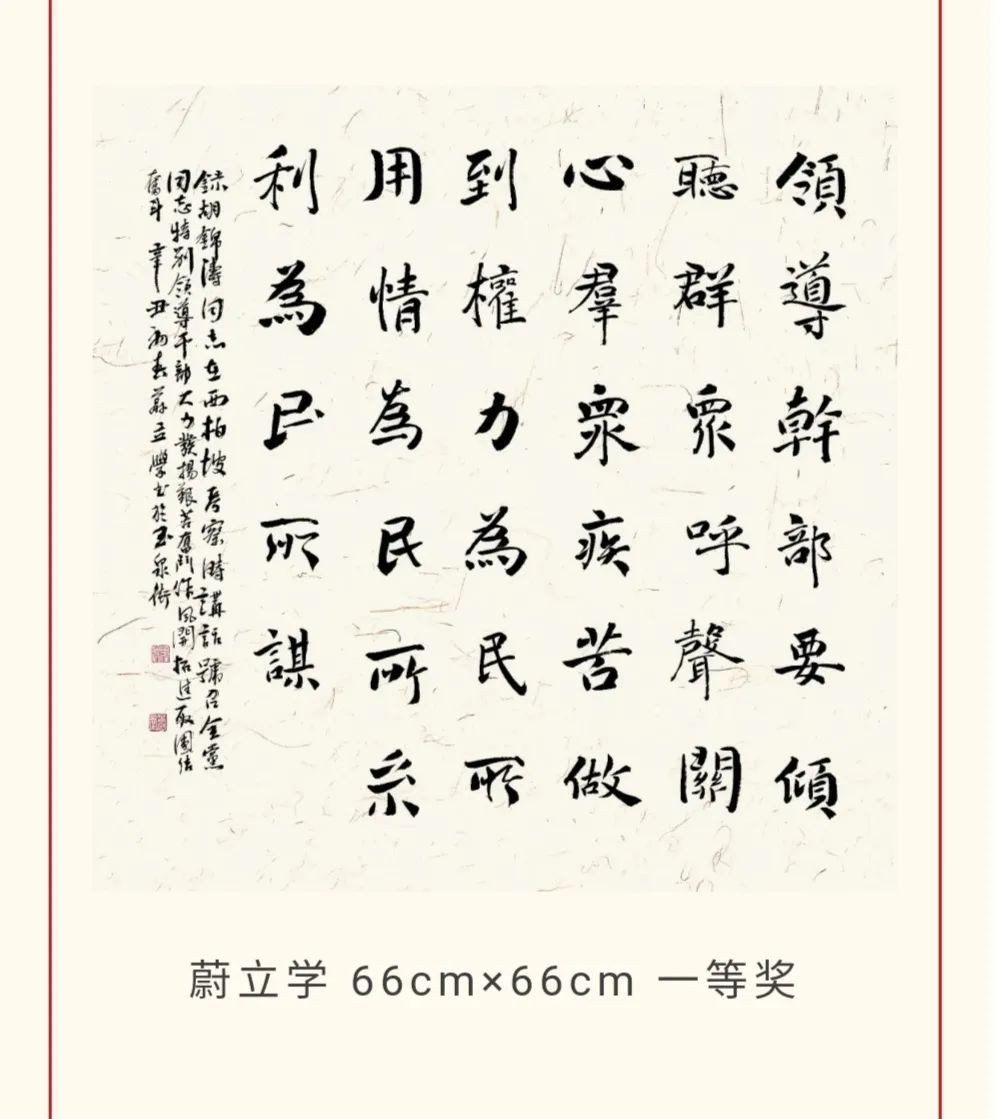 領導幹部要傾
聽群衆呼聲關
心羣衆疾苦做
到權力為民所
用情為民所系
利為民所謀
錄胡錦濤同志在西柏坡考察時講話號召全黨
同志特別領導干部大力發揚艱苦奮鬥作風開拓進取團結
奮斗 辛丑初春蔚立學書於玉泉街
蔚立学 66cm×66cm 一等奖